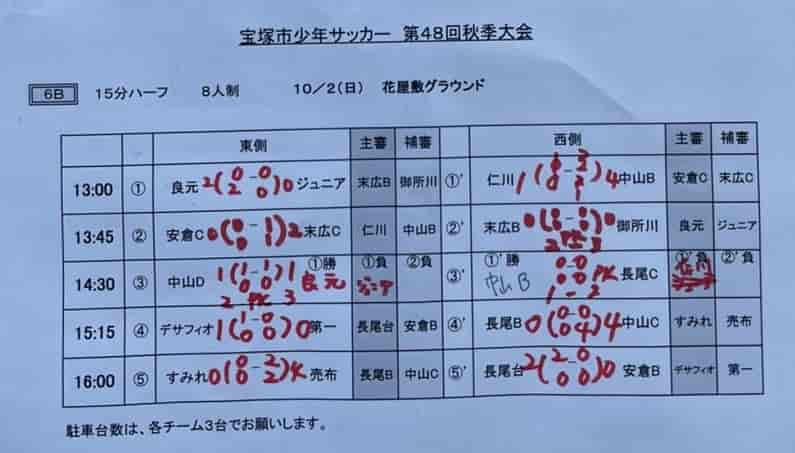 宝塚市少年サッカー 第48回秋季大会
6B 15分ハーフ 8人制 10/2(日) 花屋敷グラウンド
東側 主審 補審 西側 主審 補審
13:00 ① 良元 2 (0-0 2 0) 0 ジュニア 末広B 御所川 ①' 仁川 1 4 中山B 安倉C 末広C
13:45 ② 安倉C 0 (0-1 0 1) 2 末広C 仁川 中山B ②' 末広B 0 (0-0 0 0) 0 御所川 良元 ジュニア
2 PK 3
14:30 ③ 中山D 1 (1-1 0 0) 1 ①勝 良元 ①負 ②負 ③' ①'勝 中山B 0-0 0 0 PK 長尾C ①'負 仁川 ②'負
2 PK 3 ジュニア 1-2
15:15 ④ デサフィオ 1 (1-0 0 0) 0 第一 長尾台 安倉B ④' 長尾B 0 (0-0 0 4) 4 中山C すみれ 売布
16:00 ⑤ すみれ 0 (0-2 0 2) 4 売布 長尾B 中山C ⑤' 長尾台 2 (2-0 0 0) 0 安倉B デサフィオ 第一
駐車台数は、各チーム3台でお願いします。